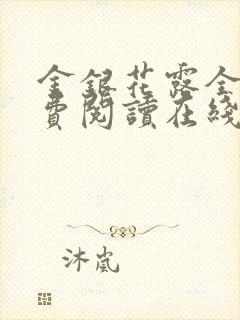 金銀花露全
費閱讀在綫
沐嵐